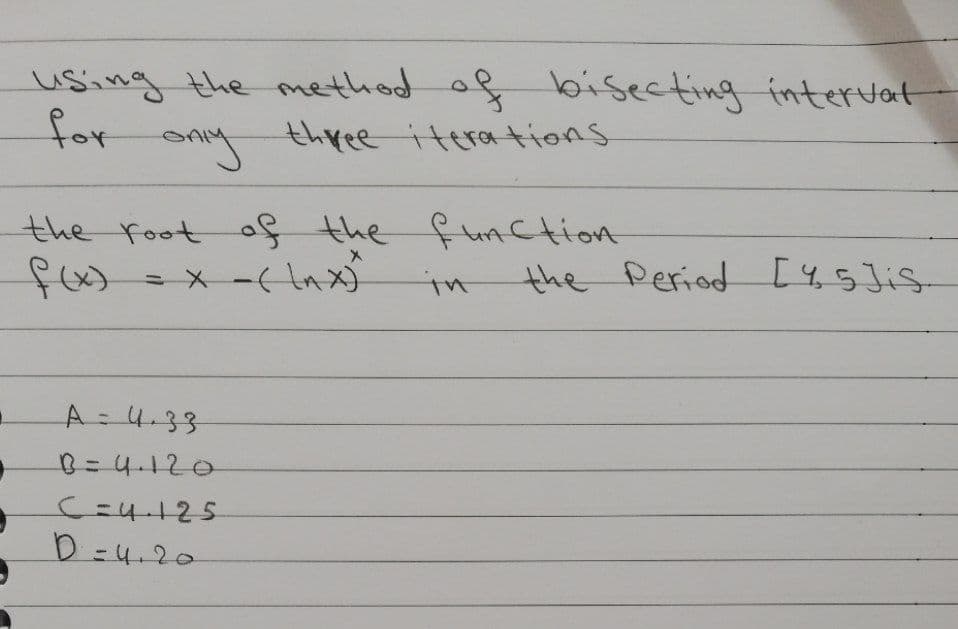 using the method of bisecting interval
for only three iterations
the root of the function
f(x) = x - (ln x)^x in the Period [4, 5] is
A = 4.33
B = 4.120
C = 4.125
D = 4.20